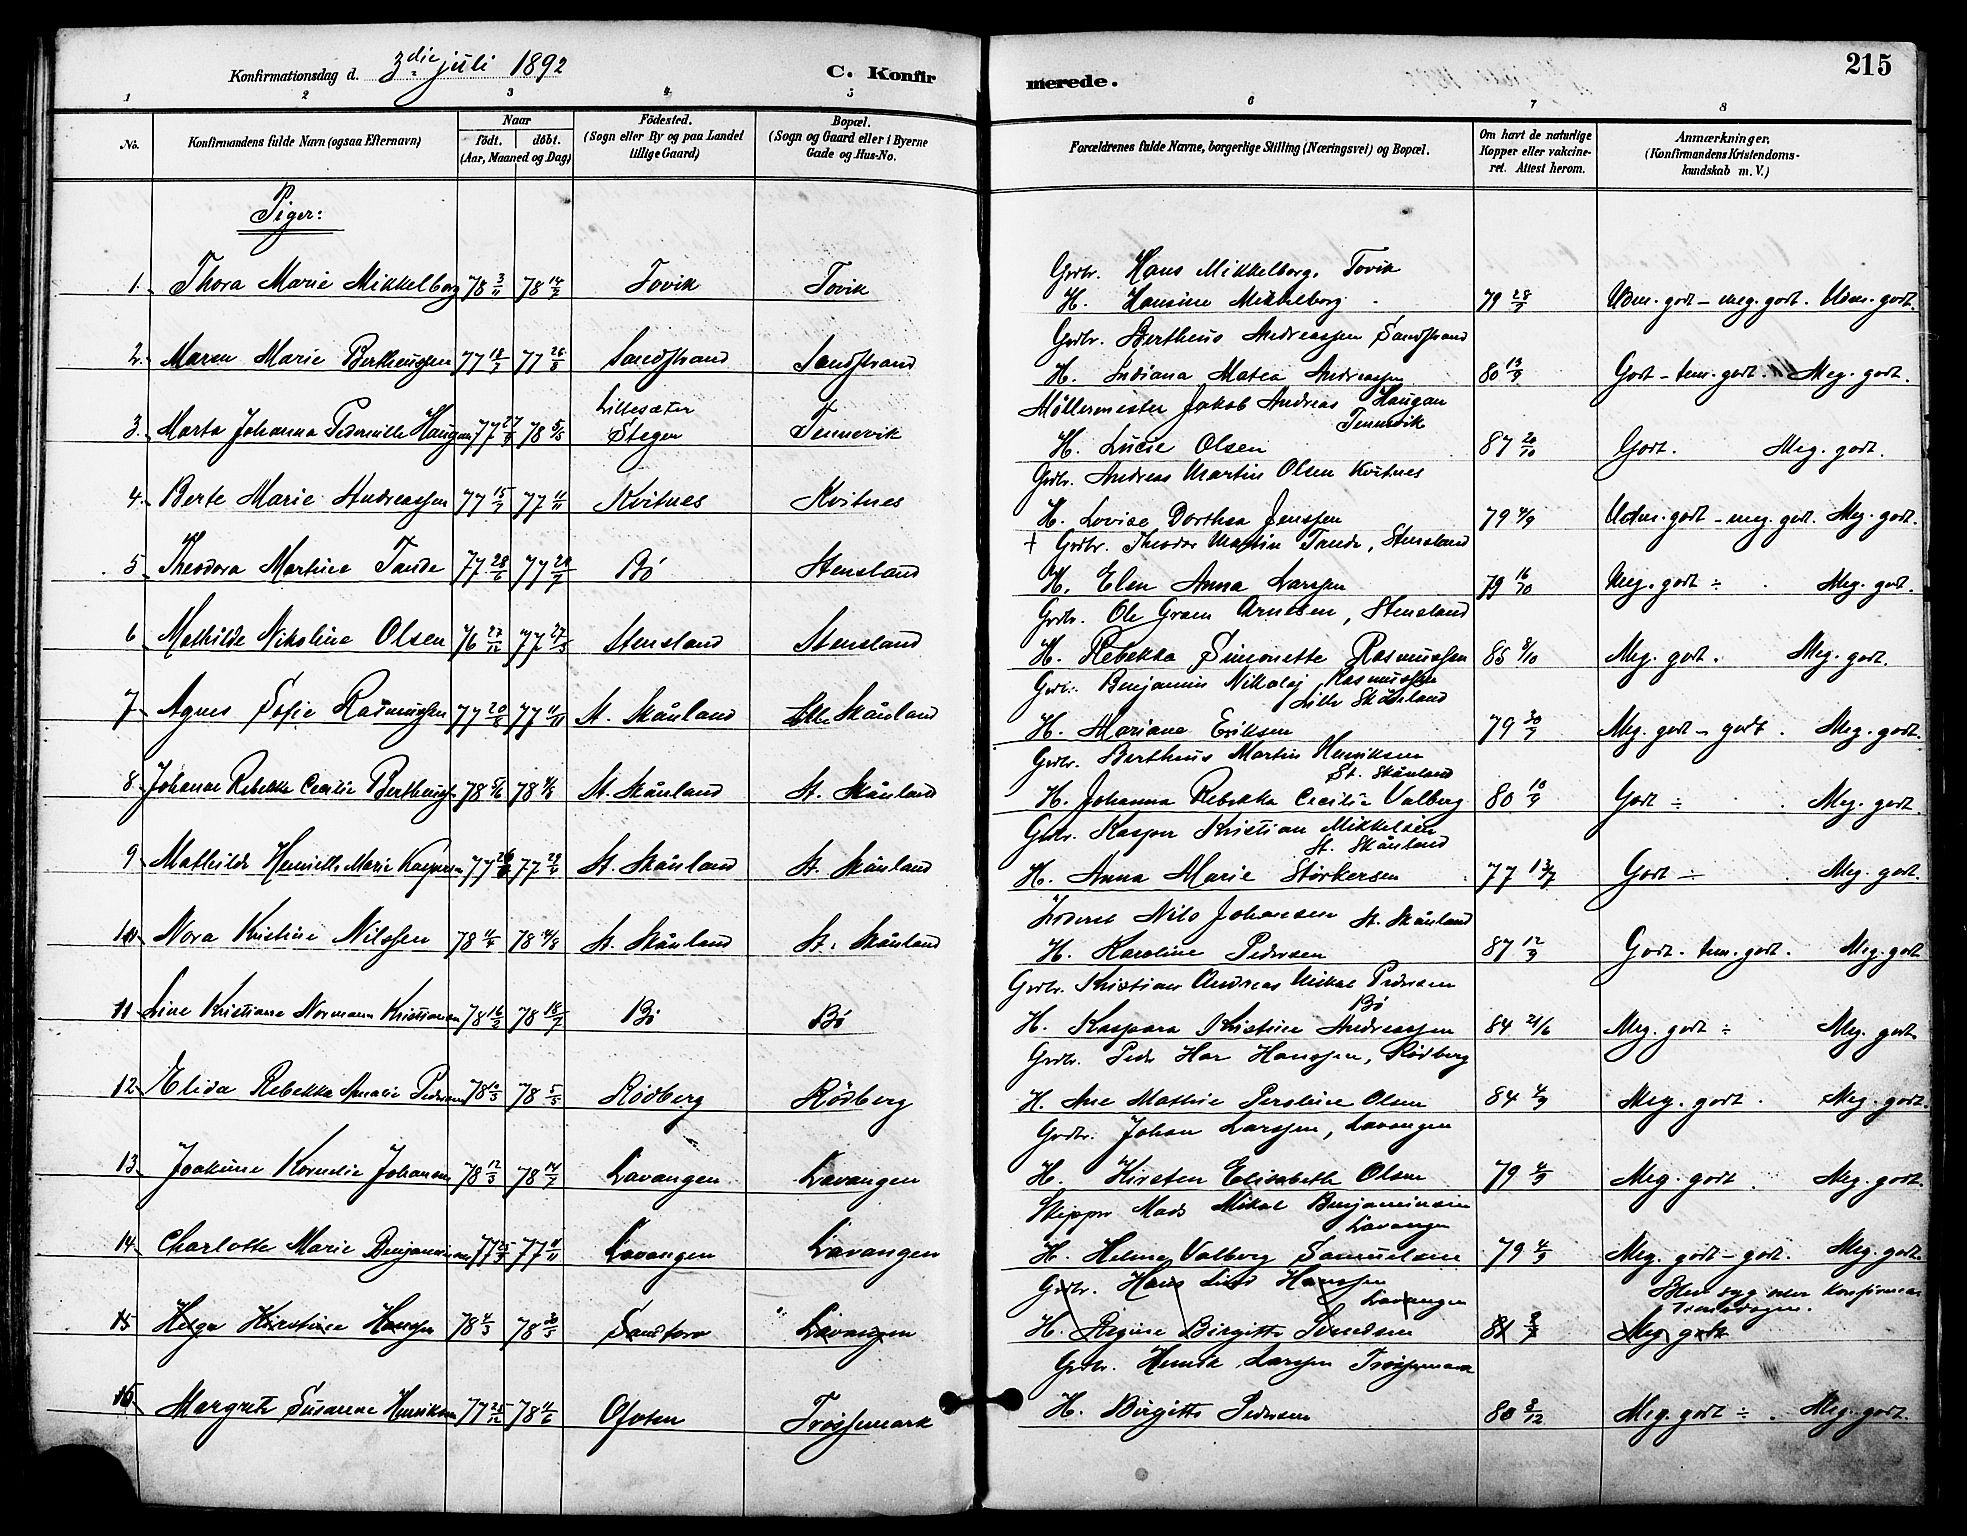 Konfirmationsdag d. 3die juli 1892
C. Konfirmerede.
215
1 2 3 4 5 6 7 8
No.
Konfirmandens fulde Navn (ogsaa Efternavn)
Naar
födt. döbt.
(Aar, Maaned og Dag)
Födested.
(Sogn eller By og paa Landet
tillige Gaard)
Bopæl.
(Sogn og Gaard eller i Byerne
Gade og Hus-No.
Forældrenes fulde Navne, borgerlige Stilling (Næringsvei) og Bopæl.
Om havt de naturlige
Kopper eller vakcine-
ret. Attest herom.
Anmærkninger,
(Konfirmandens Kristendoms-
kundskab m. V.)
Piger:
Grdbr. Hans Mikkelborg. Tovik
1. Thora Marie Mikkelborg 78 3/11 78 14/7 Tovik Tovik H. Hansine Mikkelborg 79 28/9 Udm. godt - meg. godt. Udm. godt.
Grdbr. Bertheus Andreassen Sandstrand
2. Maren Marie Bertheussen 77 18/7 77 26/8 Sandstrand Sandstrand H. Indiana Matea Andreassen 80 13/9 Godt - tem. godt. Meg. godt.
Møllermester Jakob Andreas Haugan
Lillesæter Tennevik
3. Marta Johanna Pedernille Haugan 78 5/5 Stegen Tennevik H. Lucie Olsen 87 20/10 Godt. Meg. godt.
Grdbr. Andreas Martin Olsen Kvitnes
4. Berte Marie Andreassen 77 15/7 77 11/11 Kvitnes Kvitnes H. Lovise Dorthea Jenssen 79 4/9 Udm. godt - meg. godt. Meg. godt.
+ Grdbr. Theodor Martin Tande, Stensland
5 Theodora Martine Tande 77 28/6 77 29/7 Bö Stensland H. Elen Anna Larssen 79 16/10 Meg. godt ÷ Meg. godt.
Grdbr. Ole Gram Arnesen, Stensland
6 Mathilde Nikoline Olsen 76 27/12 77 27/5 Stensland Stensland H. Rebekka Simonette Rasmussen 85 8/10 Meg. godt. Meg. godt.
Grdbr. Benjamin Nikolaj Rasmussen
Lille Skånland
7. Agnes Sofie Rasmussen 77 20/8 77 11/11 St. Skånland Lille Skånland H. Mariane Eriksen 79 30/9 Meg. godt - godt. Meg. godt.
Grdbr. Bertheus Martin Henriksen
St. Skånland
8 Johanna Rebekka Cecilie Bertheussen 78 78 St. Skånland St. Skånland H. Johanna Rebekka Cecilie Valberg 80 10/9 Godt ÷ Meg. godt.
Grdbr. Kasper Kristian Mikkelsen
St. Skånland
9 Mathilde Henriette Marie Kaspersen 77 77 St. Skånland St. Skånland H. Anna Marie Störkersen 77 13/7 Godt ÷ Meg. godt.
Inderst Nils Johansen St. Skånland
10 Nora Kristine Nilssen 78 78 St. Skånland St. Skånland H. Karoline Pedersen 87 12/9 Godt - tem. godt. Meg. godt
Grdbr. Kristian Andreas Mikal Pedersen
Bö
11 Line Kristiane Normann Kristiansen 78 16/2 78 18/7 Bö Bö H. Kaspara Kristine Andreassen 84 21/6 Meg. godt ÷ Meg. godt.
Grdbr. Peder Har Hanssen, Rödberg
12. Elida Rebekka Amalie Pedersen 78 10/3 78 5/5 Rödberg Rödberg H. Ane Mathie Pernline Olsen 84 4/9 Meg. godt. Meg. godt.
Grdbr. Johan Larssen, Lavangen
13. Joakime Kornelie Johansen 78 12/3 78 14/7 Lavangen Lavangen H. Kirsten Elisabeth Olsen 79 4/9 Meg. godt. Meg. godt.
Skipper Mads Mikal Benjaminsen
Lavangen
14. Charlotte Marie Benjaminsen 77 77 11/11 Lavangen Lavangen H. Helene Valberg Samuelsen 79 4/9 Meg. godt - godt. Meg. godt.
Grdbr. Hans Lind Hanssen
Lavangen
Blev syg inden Konfirmationsdagen.
15 Helga Kirstine Hanssen 78 4/3 78 30/5 Sandtorv Lavangen H. Regine Birgitte Svendsen Meg. godt
Grdbr. Henrik Larssen Trössemark
16 Margrete Susanne Henriksen 77 25/12 78 11/6 Ofoten Trössemark H. Birgitte Pedersen 80 8/12 Meg. godt ÷ Meg. godt.